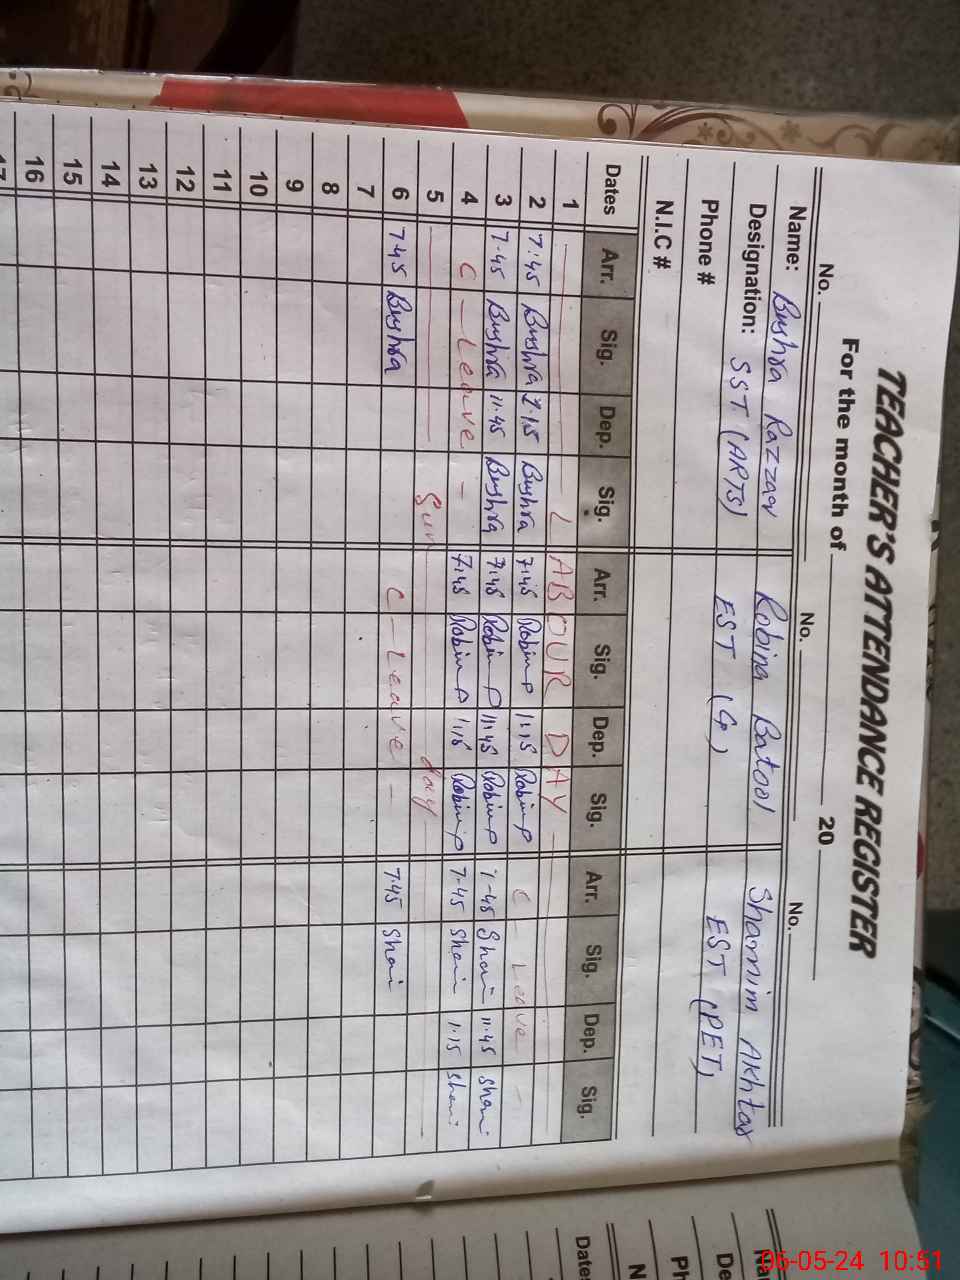 TEACHER'S ATTENDANCE REGISTER
For the month of 20
No. No. No.
Name: Bushra Razzaq Robina Batool Shamim Akhtar
Designation: SST (ARTS) EST (G) EST (PET)
Phone #
N.I.C #
Dates Arr. Sig. Dep. Sig. Arr. Sig. Dep. Sig. Arr. Sig. Dep. Sig.
1 LABOUR DAY
2 7:45 Bushra 1.15 Bushra 7:45 Robina 1:15 Robina C - Leave -
3 7.45 Bushra 11.45 Bushra 7:45 Robina 11:45 Robina 7-45 Sham 11.45 Sham
4 C - Leave - 7:45 Robina 1:15 Robina 7-45 Sham 1.15 Sham
5 Sun day
6 7.45 Bushra C - Leave - 7.45 Sham
7
8
9
10
11
12
13
14
15
16
17
Dates
06-05-24 10:51